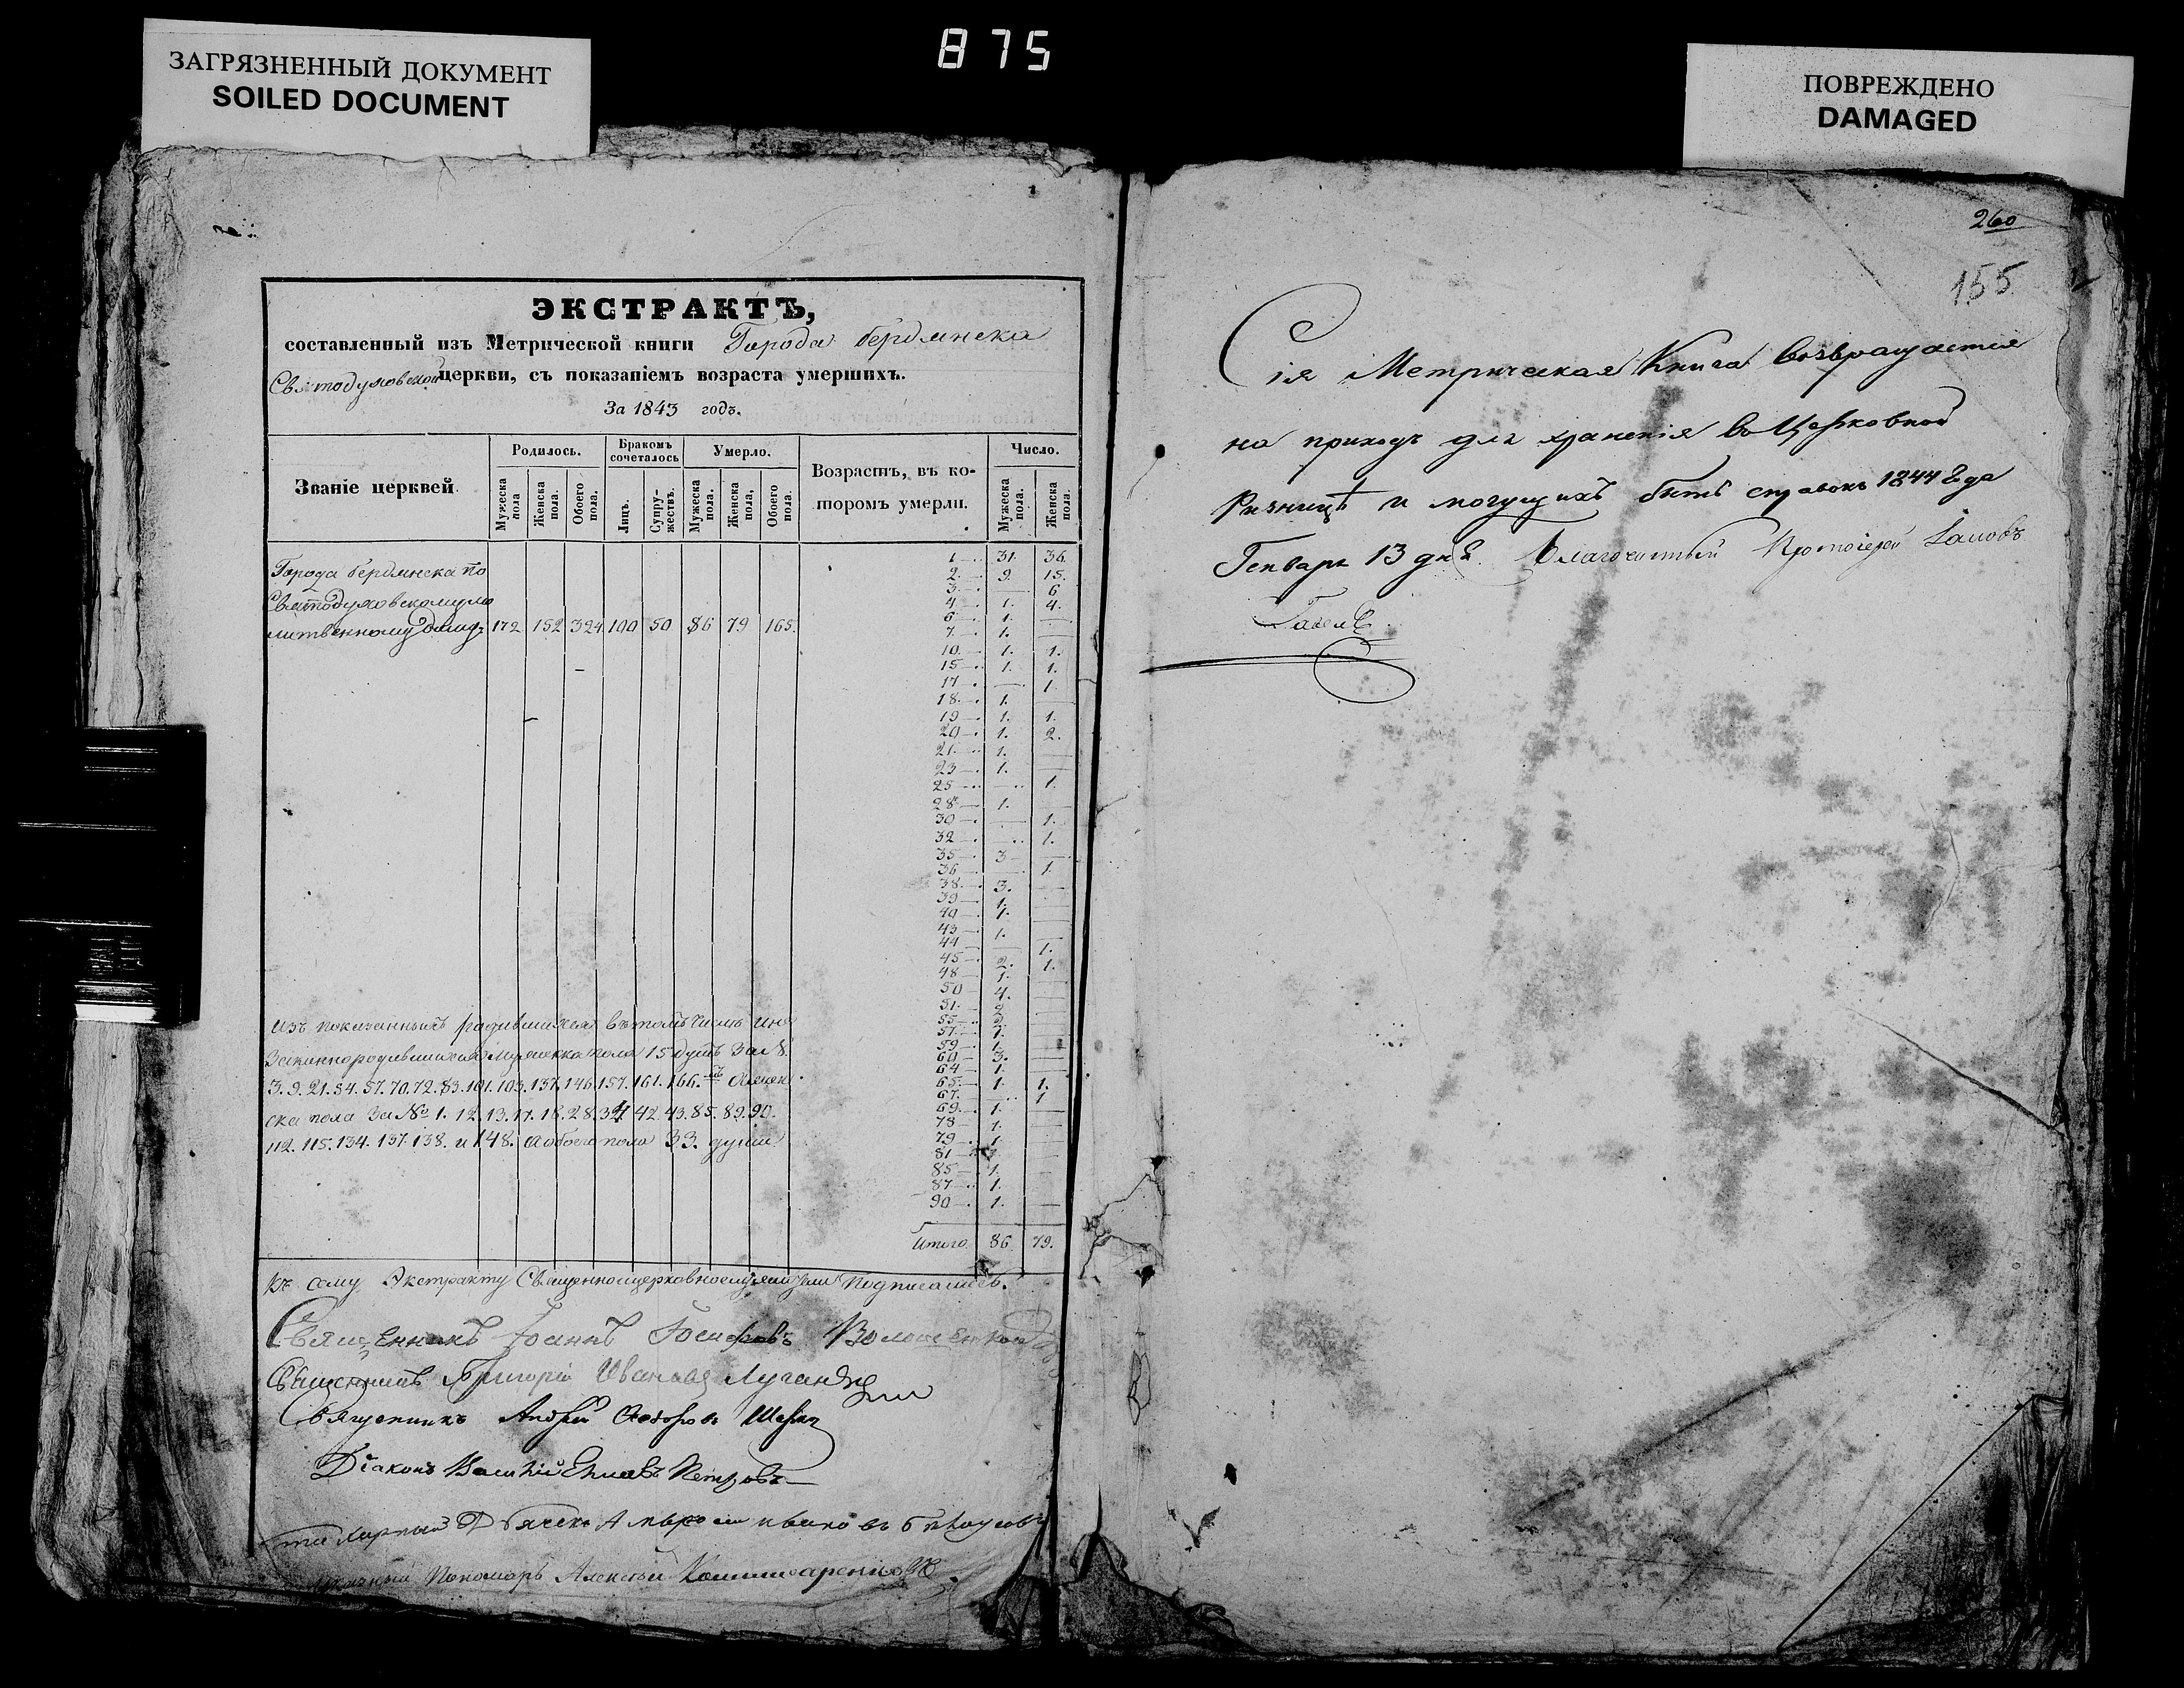 875
ЗАГРЯЗНЕННЫЙ ДОКУМЕНТ
SOILED DOCUMENT
ПОВРЕЖДЕНО
DAMAGED
ЭКСТРАКТЪ,
составленный изъ Метрической книги Города бердянска
Святодуховской церкви, съ показаніемъ возраста умершихъ.
За 1843 годъ.
Званіе церквей.
Родилось.
Мужеска пола
Женска пола.
Обоего пола.
Бракомъ сочеталось
Лицъ.
Супру-жествъ.
Умерло.
Мужеска пола.
Женска пола,
Обоего пола.
Возрастъ, въ ко-
торомъ умерли.
Число.
Мужеска пола.
Женска пола.
Города бердянска по
Святодуховскому мо
литвенному Дому 172 152 324. 100 50 86 79 165.
1 — 31. 36.
2. — 9. 15.
3 — — 6
4 — 1. 4.
6 — 1. —
7. — 1. —
10. — 1. 1.
15 — 1. 1.
17 — — 1.
18. — 1. —
19 — 1. 1.
20 — 1. 2.
21. — 1. —
23 — 1. —
25 — — 1.
28 — 1. —
30 — — 1.
32 — — 1.
35 — 3 —
36 — — 1.
38 — 3. —
39 — 1. —
40 — 1. —
43 — 1. —
44 — — 1.
45 — 2. 1.
48 — 1. —
50 — 4. —
51. 2 —
55 — 2 —
57. — 1. —
59 — 1. —
60 — 3. —
64 — 1. —
65. — 1. 1.
67. — — 1
69. — 1. —
78 1. —
79 — 1. —
81 — —
85 — 1. —
87 — 1. —
90 — 1. —
Итого. 86 79.
изъ показанныхъ родившихся въ томъ числѣ
мужеска пола 15 душъ За №
3. 9. 21. 54. 57. 70. 72. 83. 101. 103. 137. 146. 157. 161. 166.
ска пола За № 1. 12. 13. 17. 18. 28. 34 42. 43. 85. 89. 90.
112. 115. 134. 137. 138. и 148. а обоего пола 33. души
Къ сему Экстракту Священноцерковнослужители Подписались.
Священникъ Іоаннъ Волошенков
Священникъ Григорій Ивановъ
Священникъ Андрей
Діаконъ Василій Петровъ
Пономарь Алексѣй
260
155
Сія Метрическая Книга возвращается
на приходъ для храненія въ Церковной
Ризницѣ и могущихъ быть справокъ 1844 года
Генваря 13 дня. Благочинный Протоіерей